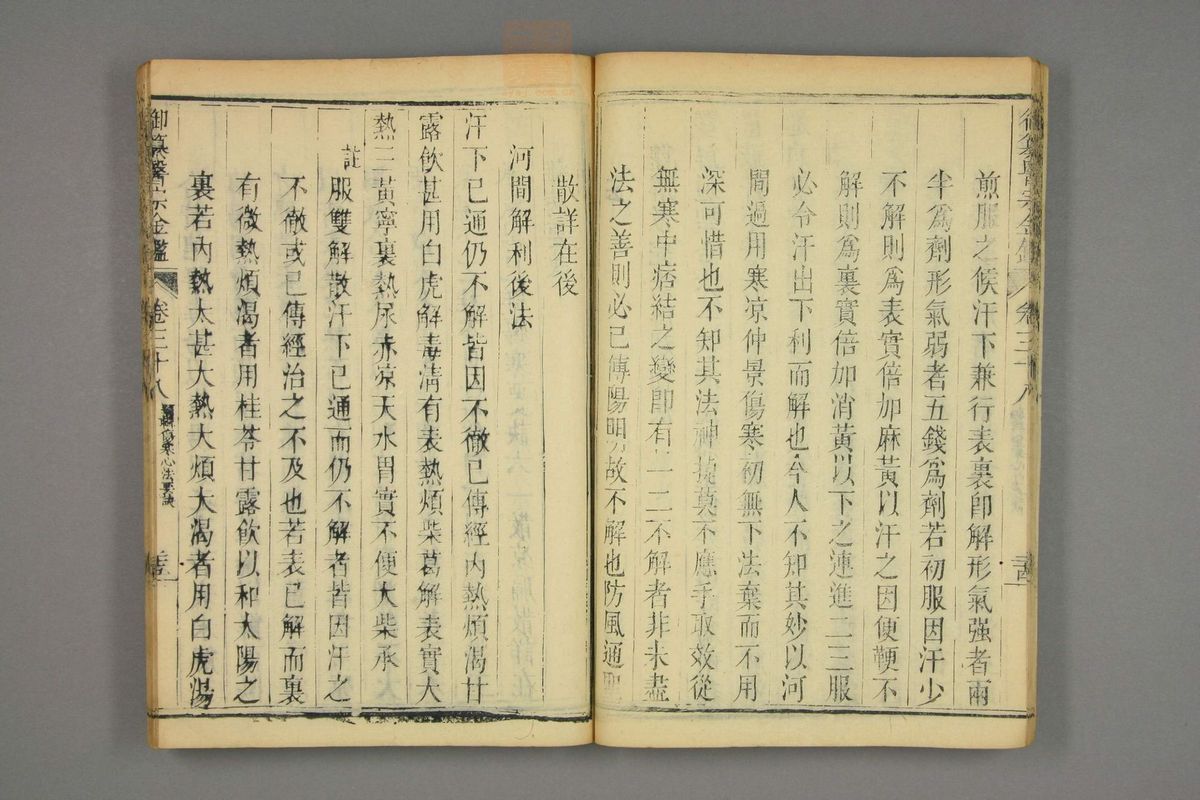 煎服之候汗下兼行表裏卽解形氣强者兩
半爲劑形氣弱者五錢爲劑若初服因汗少
不解則爲表實倍加麻黃以汗之因便鞕不
解則爲裏實倍加消黃以下之連進二三服
必令汗出下利而解也今人不知其妙以河
間過用寒凉仲景傷寒初無下法棄而不用
深可惜也不知其法神捷莫不應手取效從
無寒中痞結之變卽有一二不解者非未盡
法之善則必已傳陽明故不解也防風通聖
散詳在後
河間解利後法
汗下已通仍不解皆因不徹已傳經內熱煩渴甘
露飮甚用白虎解毒淸有表熱煩柴葛解表實大
熱三黃寧裏熱尿赤凉天水胃實不便大柴承
註
服雙解散汗下已通而仍不解者皆因汗之
不徹或已傳經治之不及也若表已解而裏
有微熱煩渴者用桂苓甘露飮以和太陽之
裏若內熱太甚大熱大煩大渴者用白虎湯
御纂醫宗金鑑
卷三十八
傷寒心法要訣